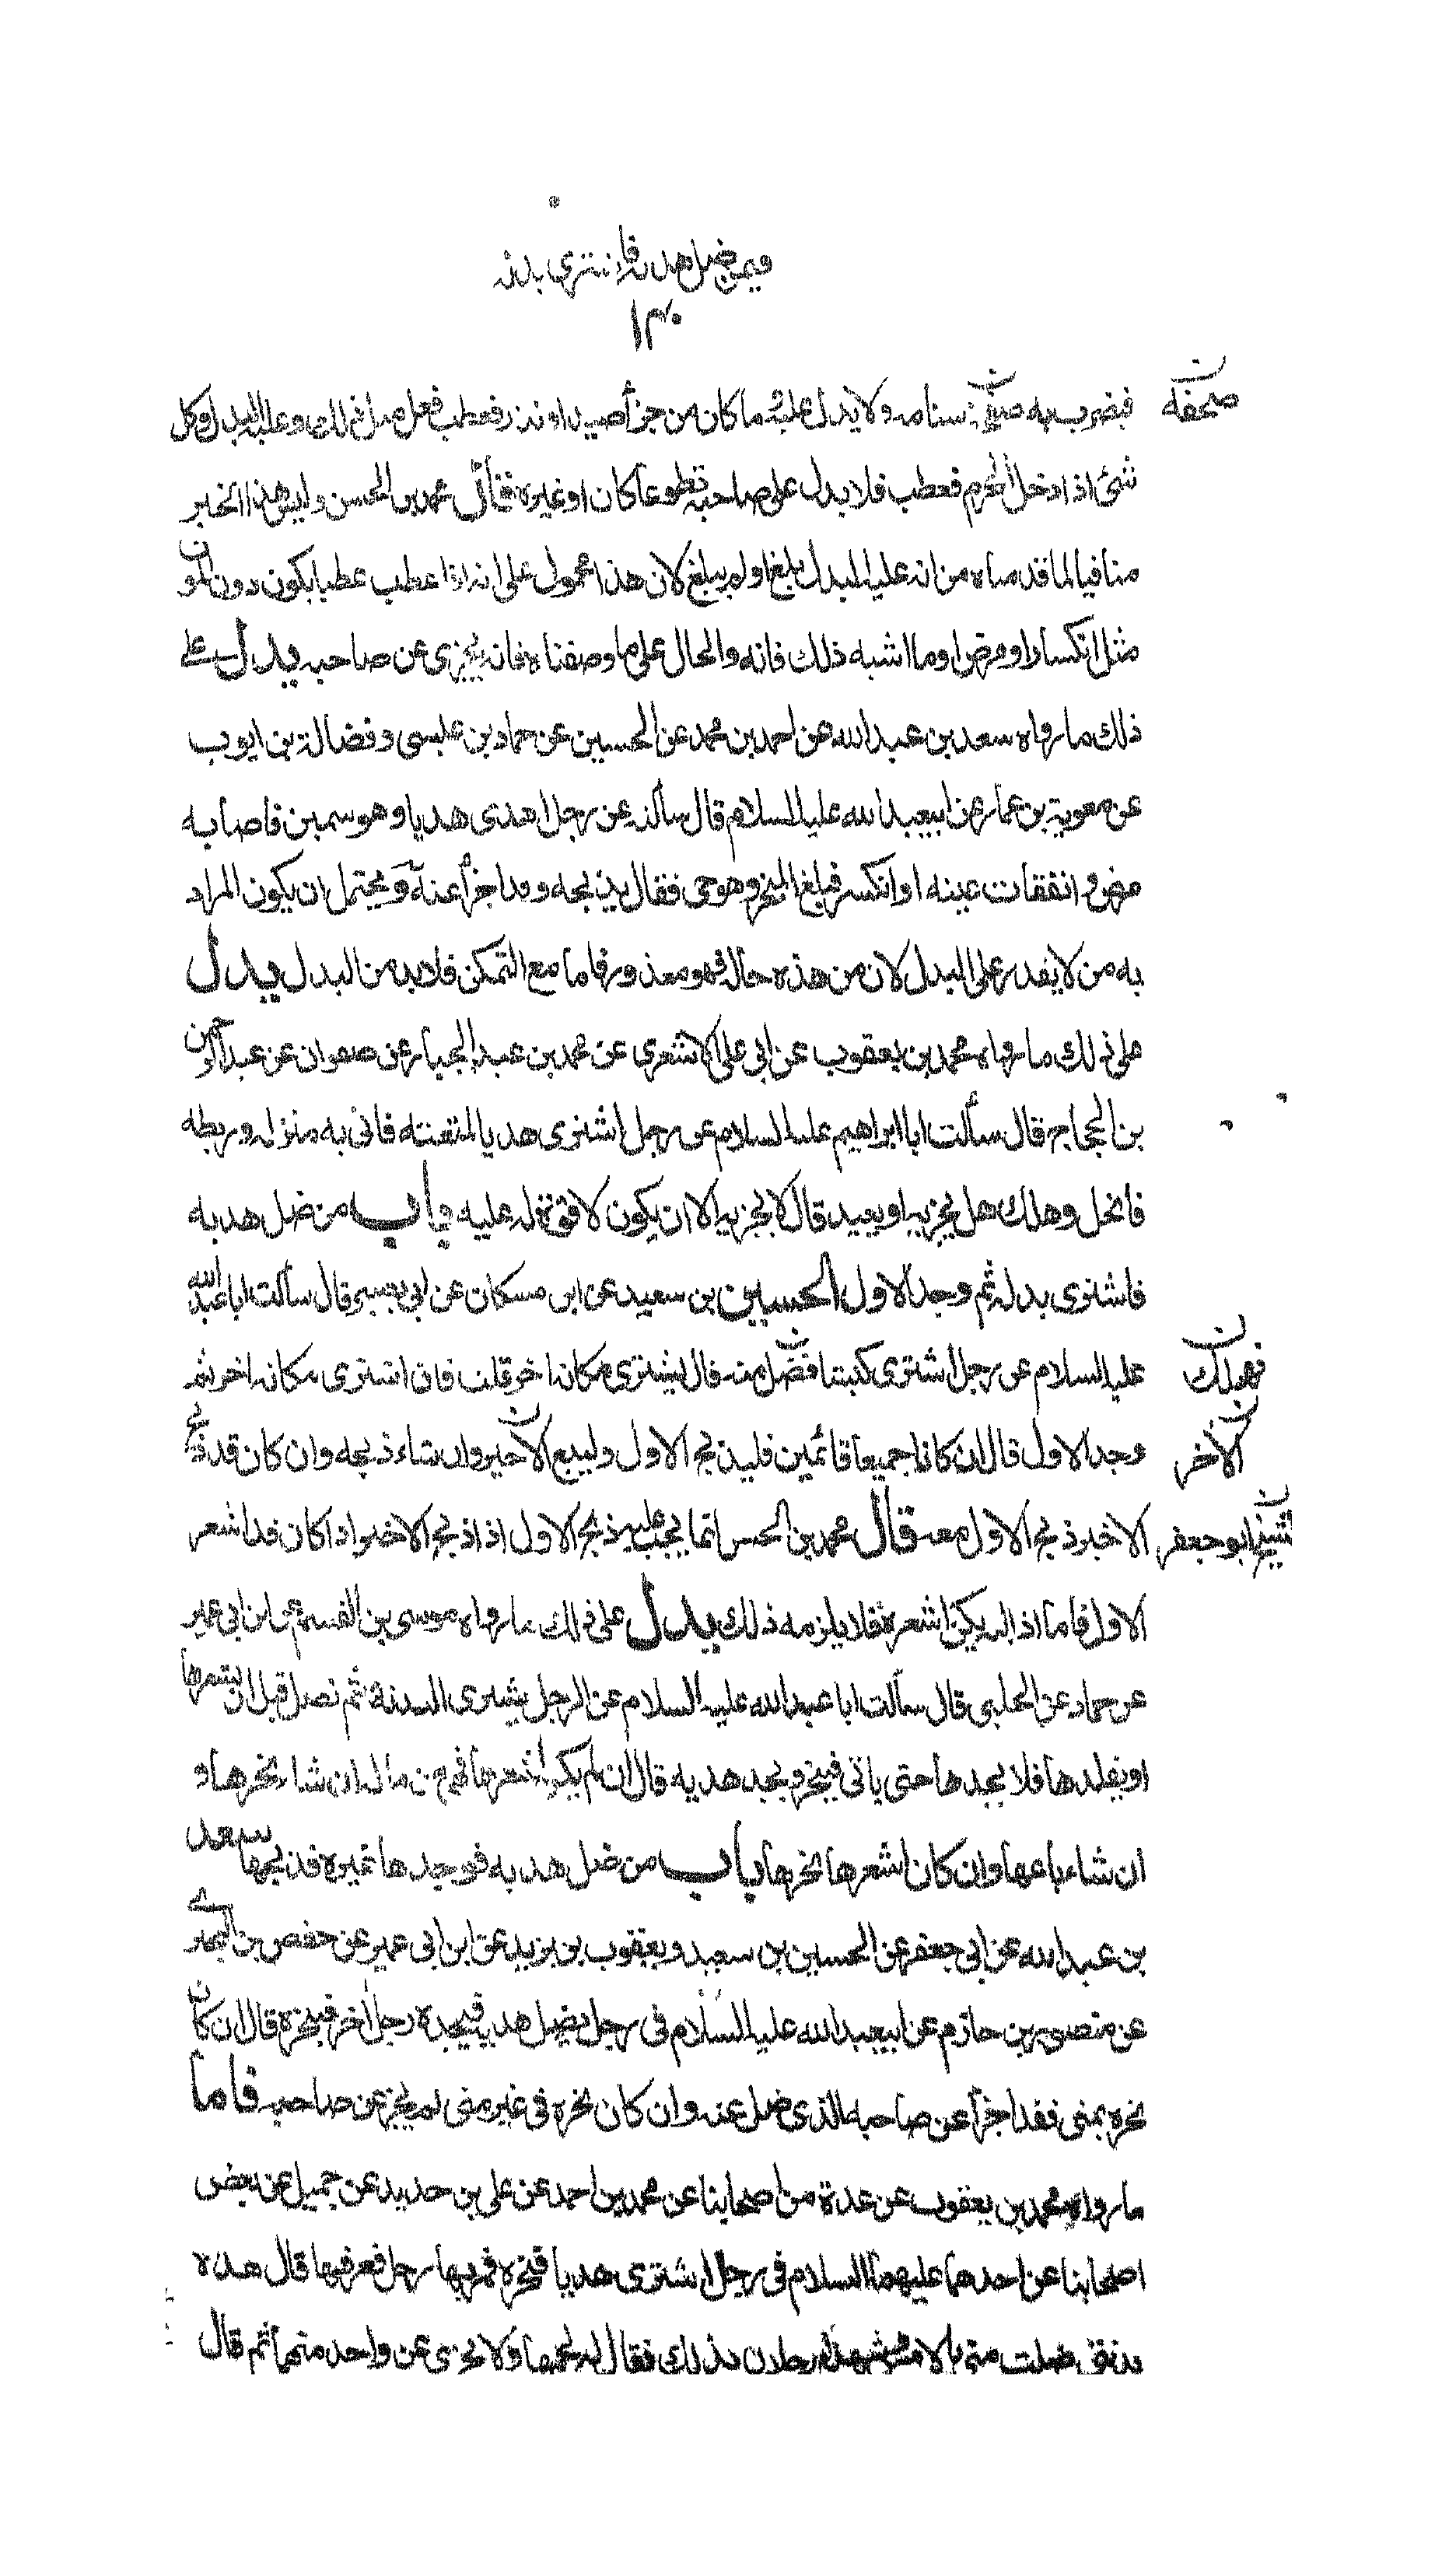 فيمن ضل هديه فاشترى بدله
١٣٠
فيضرب به صفحة سنامه ولا بدل عليه ما كان من جزاء صيد او نذر فعطب فعل مثل ذلك وعليه البدل وكل
صحفة
شئ اذا دخل الحرم فعطب فلا بدل على صاحبه تطوعا كان او غيره فقال محمد بن الحسن وليس هذا الخبر
منافيا لما قدمناه من انه عليه البدل بلغ او لم يبلغ لان هذا محمول على انه اذا عطب عطبا يكون دون الموت
مثل انكسار او مرض او ما اشبه ذلك فانه والحال على ما وصفناه فانه يجزى عن صاحبه يدل على
ذلك ما رواه سعد بن عبد الله عن احمد بن محمد عن الحسين عن حماد بن عيسى وفضالة بن ايوب
عن معوية بن عمار عن ابيعبد الله عليه السلام قال سألته عن رجل اهدى هديا وهو سمين فاصابه
مرض وانفقات عينه او انكسر فبلغ المنحر وهو حى فقال يذبحه وقد اجزأ عنه ويحتمل ان يكون المراد
به من لا يقدر على البدل لان من هذه حاله فهو معذور فاما مع التمكن فلابد من البدل يدل
على ذلك ما رواه محمد بن يعقوب عن ابي على الاشعرى عن محمد بن عبد الجبار عن صفوان عن عبد الرحمن
بن الحجاج قال سألت ابا ابراهيم عليه السلام عن رجل اشترى هديا لمتعته فاتى به منزله وربطه
فانحل وهلك هل يجزيه او يعيد قال لا يجزيه الا ان يكون لا قوة له عليه باب من ضل هديه
فاشترى بدله ثم وجد الاول الحسين بن سعيد عن ابن مسكان عن ابي بصير قال سألت ابا عبد الله
عليه السلام عن رجل اشترى كبشا فضل منه قال يشترى مكانه اخر قلت فان اشترى مكانه اخر ثم
فهلك
وجد الاول قال ان كانا جميعا قائمين فليذبح الاول وليبع الاخير وان شاء ذبحه وان كان قد ذبح
الآخر
الاخير ذبح الاول معه قال محمد بن الحسن انما يجب عليه ذبح الاول اذا ذبح الاخير اذا كان قد اشعر
الشيخ ابو جعفر
الاول فاما اذا لم يكن اشعره فلا يلزمه ذلك يدل على ذلك ما رواه موسى بن القسم عن ابن ابي عمير
عن حماد عن الحلبى قال سألت ابا عبد الله عليه السلام عن الرجل يشترى البدنة ثم تضل قبل ان يشعرها
او يقلدها فلا يجدها حتى ياتى فينحر ويجد هديه قال ان لم يكن اشعرها فهى من ماله ان شاء نحرها و
ان شاء باعها وان كان اشعرها نحرها باب من ضل هديه فوجدها غيره فذبحها سعد
بن عبد الله عن ابي جعفر عن الحسين بن سعيد ويعقوب بن يزيد عن ابن ابي عمير عن حفص بن البخترى
عن منصور بن حازم عن ابيعبد الله عليه السلام في رجل يضل هديه فيجده رجل اخر فينحره قال ان كان
نحره بمنى فقد اجزأ عن صاحبه الذى ضل عنه وان كان نحره فى غير منى لم يجز عن صاحبه فاما
ما رواه محمد بن يعقوب عن عدة من اصحابنا عن محمد بن احمد عن على بن حديد عن جميل عن بعض
اصحابنا عن احدهما عليهما السلام فى رجل اشترى هديا فنحره فمر بها رجل فعرفها قال هذه
بدنتى ضلت منى بالامس وشهد له رجلان بذلك فقال له لحمها ولا يجزى عن واحد منهما ثم قال